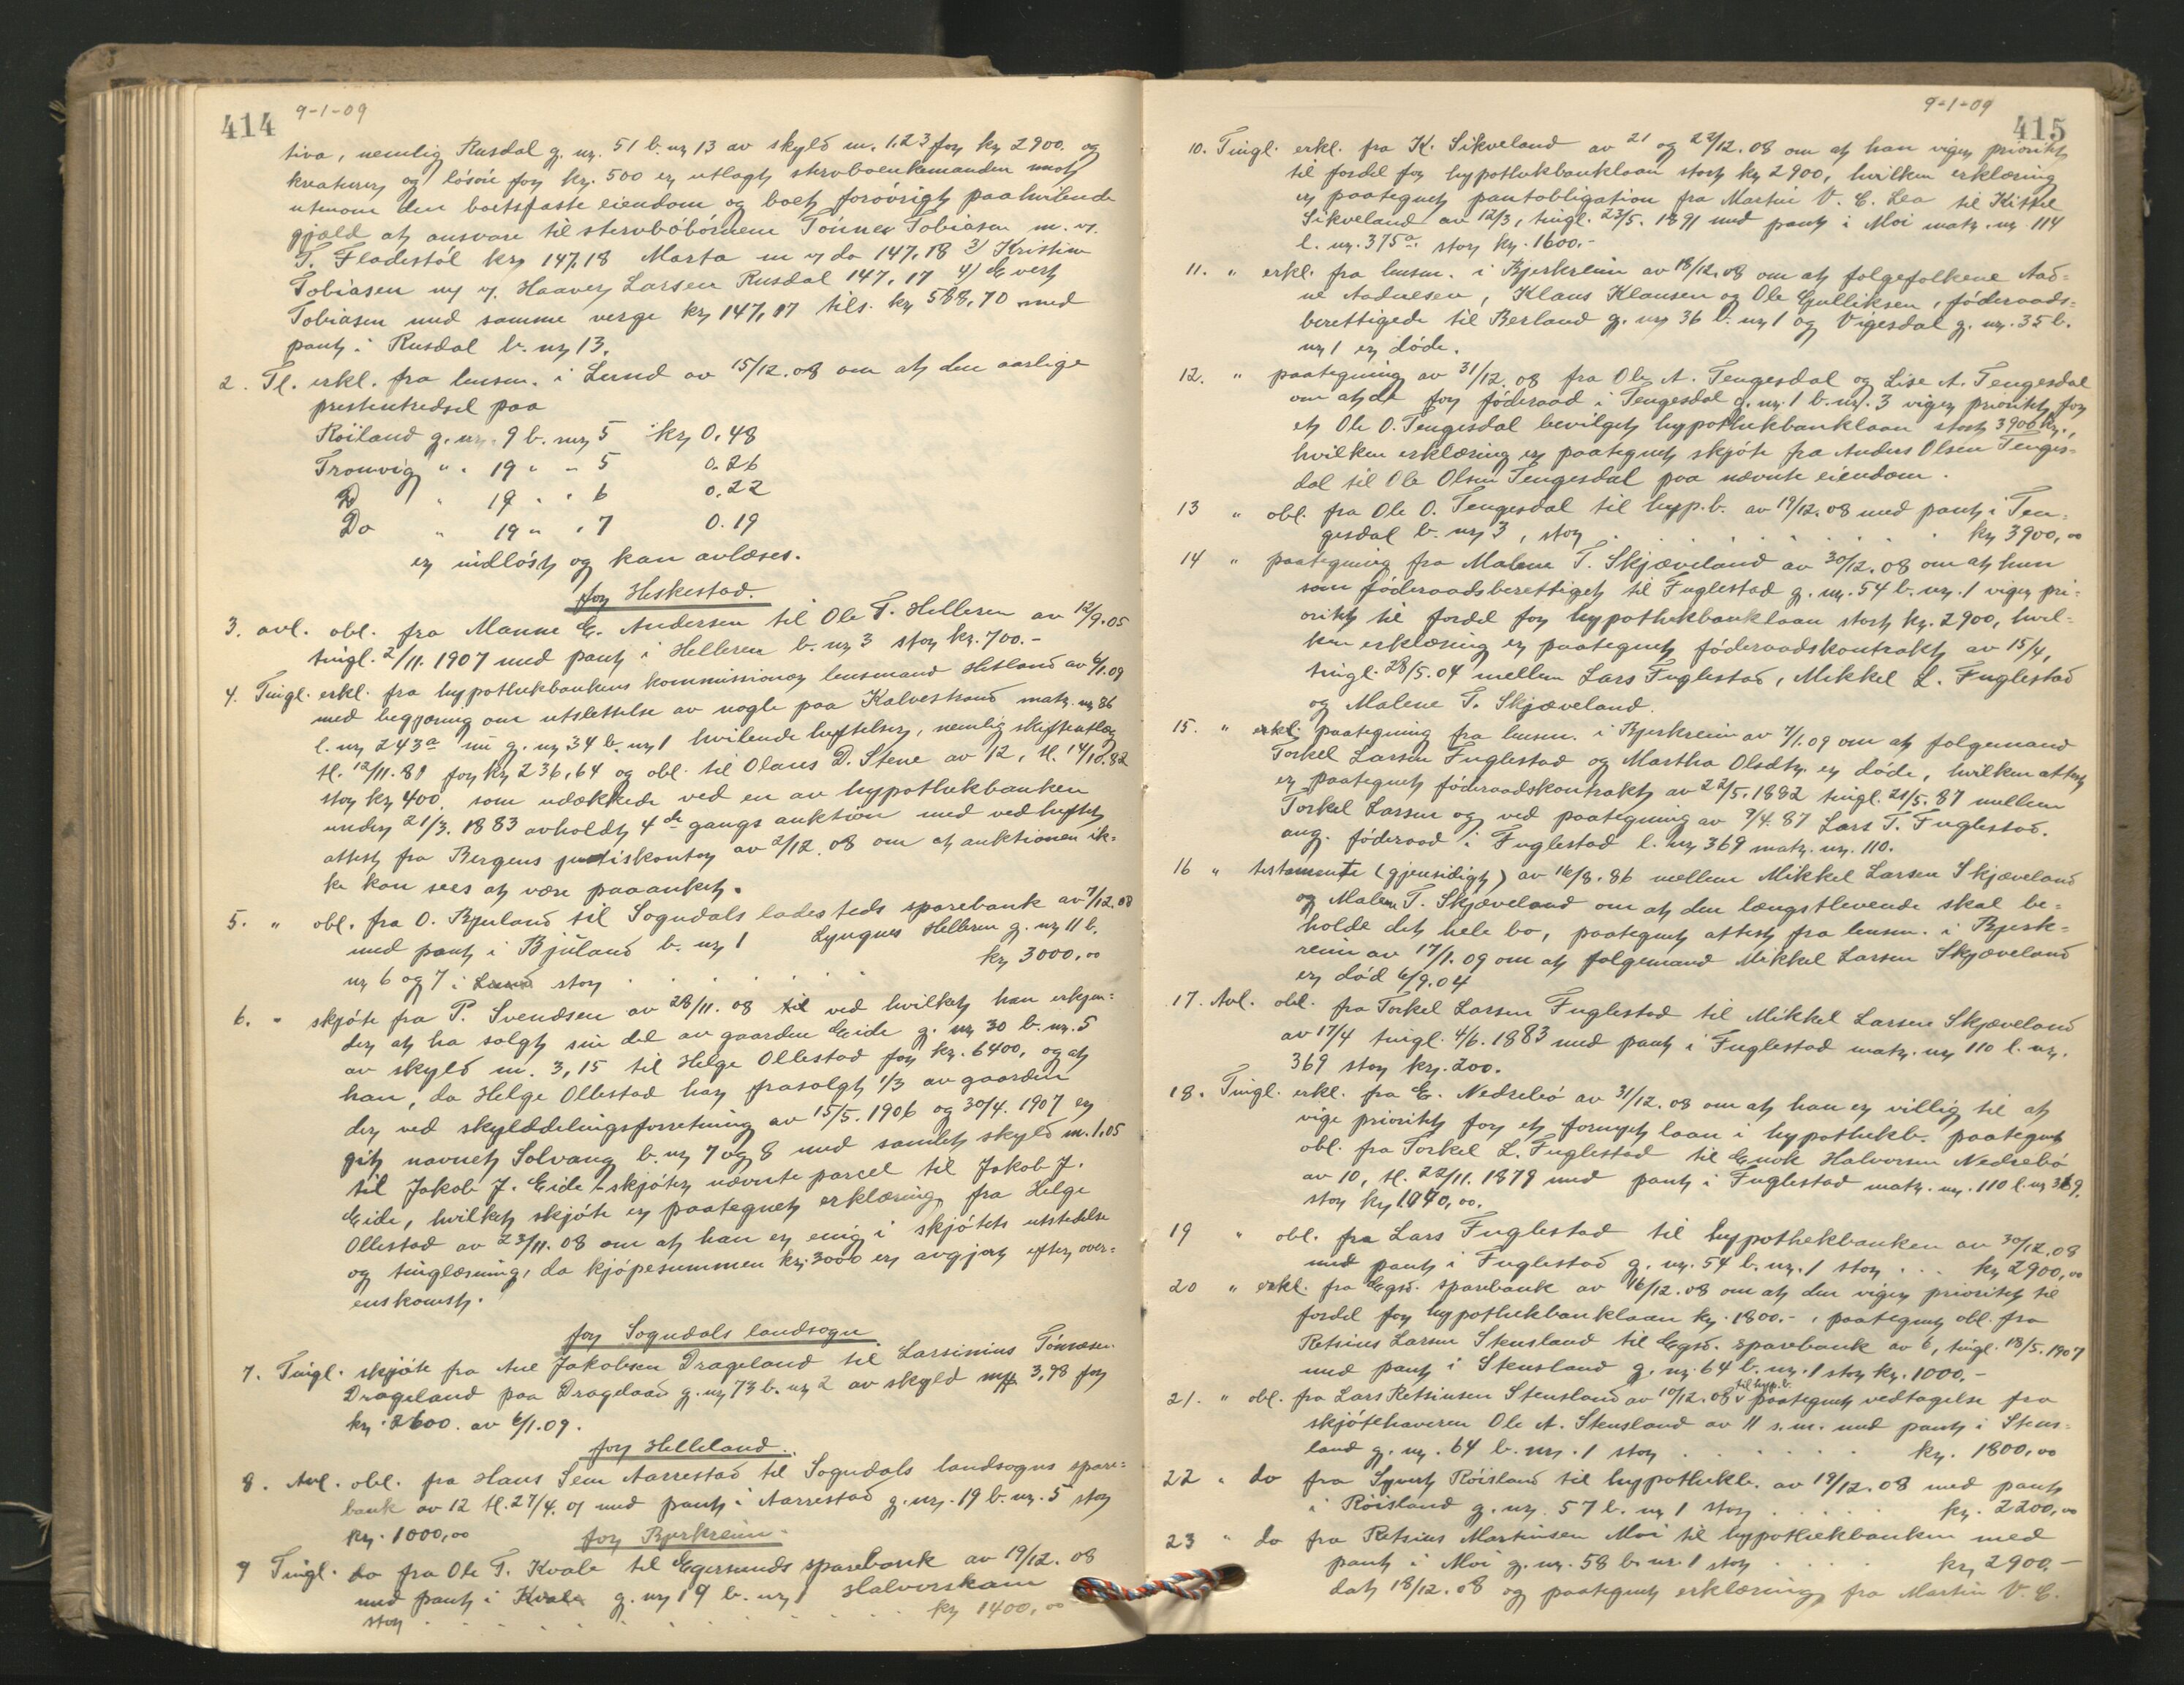 414 9-1-09
tiva, nemlig Rusdal g. nr. 51 b. nr 13 av skyld m. 1.23 for kr 2900. og
kreaturer og lösöre for kr. 500 er utlagt stervboenkemanden mot
utenom den boetsfaste eiendom og boet forövrigt paahvilende
gjæld at ansvare til stervbóbörnene Tönnes Tobiasen m. v.
T. Fladestöl kr 147,18 Marta m v do 147.18 3) Kristine
Tobiasen m v. Haaver Larsen Rusdal 147,17 4) Evert
Tobiasen med samme verge kr 147,17 tils. kr 588,70 med
pant i Rusdal b. nr 13.
2. Tl. erkl. fra lensm. i Lund av 15/12.08 om at den aarlige
prestentredsel paa
Röiland g. nr. 9 b. nr 5 kr 0,48
Tronvig " . 19 " " 5 0.26
D " 19 . . 6 0,22
Do " 19 " . 7 0.19
er indlöst og kan avlæses.
for Heskestad.
3. avl. obl. fra Manne E. Andersen til Ole T. Helleren av 12/9.05
tingl. 2/11. 1907 med pant i Helleren b. nr 3 stor kr. 700.-
4. Tingl. erkl. fra hypothekbankens kommissionær lensmand Hetland av 6/1.09
med begjæring om utslettelse av nogle paa Kalvestrand matr. nr 86
l. nr 243a nu g. nr 34 b. nr 1 hvilende heftelser, nemlig skifteutlæg
tl. 12/11.81 for kr 236,64 og obl. til Olaus D. Stene av 12, tl. 14/10.82
stor kr 400, som udækkede ved en av hypothekbanken
under 21/3. 1883 avholdt 4de gangs auktion med vedheftet
attest fra Bergens justiskontor av 2/12.08 om at auktionen ik-
ke kan sees at være paaanket.
5. " obl. fra O. Bjuland til Sogndals ladesteds sparebank av 7/12.08
med pant i Bjuland b. nr 1 Lyngnes Helleren g. nr 11 b.
nr 6 og 7 i Lund stor . . . . . . kr 3000,00
6. " skjöte fra P. Svendsen av 28/11. 08 til ved hvilket han erkjen-
der at ha solgt sin del av gaarden Eide g. nr 30 b. nr. 5
av skyld m. 3,15 til Helge Ollestad for kr. 6400, og at
han, da Helge Ollestad har frasolgt 1/3 av gaarden
der ved skylddelingsforretning av 15/5. 1906 og 30/4. 1907 er
git navnet Solvang b. nr 7 og 8 med samlet skyld m. 1,05
til Jakob J. Eide - skjöter nævnte parcel til Jakob J.
Eide, hvilket skjöte er paategnet erklæring fra Helge
Ollestad av 23/11.08 om at han er enig i skjötets utstedelse
og tinglæsning, da kjöpesummen kr. 3000 er avgjort efter over-
enskomst.
for Sogndals landsogn
7. Tingl. skjöte fra Ane Jakobsen Drageland til Larsinius Tönnesen
Drageland paa Dragelaad g. nr 73 b. nr 2 av skyld m 3,98 for
kr. 2600. av 6/1.09.
for Helleland.
8. Avl. obl. fra Hans Sem Aarrestad til Sogndals landsogns spare-
bank av 12 tl. 27/4. 07 med pant i Aarrestad g. nr. 19 b. nr. 5 stor
kr. 1000,00
for Bjerkreim.
9 Tingl. do fra Ole T. Kvale til Egersunds sparebank av 19/12. 08
med pant i Kvale g. nr 19 b. nr 1 Halvorskam
stor . . . . . . . . . kr 1400,00
9-1-09 415
10. Tingl. erkl. fra K. Sikveland av 21 og 22/12. 08 om at han viger prioritet
til fordel for hypothekbanklaan stort kr 2900, hvilken erklæring
er paategnet pantobligation fra Martin V. E. Lea til Kittel
Sikveland av 12/3, tingl. 23/5. 1891 med pant i Moi matr. nr 114
l. nr. 375a. stor kr. 1600.-
11. " erkl. fra lensm. i Bjerkreim av 18/12.08 om at folgefolkene Aad-
ne Aadnesen, Klaus Klausen og Ole Gulliksen, föderaads-
berettigede til Berland g. nr 36 b. nr 1 og Vigesdal g. nr. 35 b.
nr 1 er döde.
12. " paategning av 31/12. 08 fra Ole A. Tengesdal og Lise A. Tengesdal
om at de for föderaad i Tengesdal g. nr. 1 b. nr. 3 viger prioritet for
et Ole O. Tengesdal bevilget hypothekbanklaan stort 3900 kr.,
hvilken erklæring er paategnet skjöte fra Anders Olsen Tenges-
dal til Ole Olsen Tengesdal paa nævnte eiendom.
13 " obl. fra Ole O. Tengesdal til hyp.b. av 19/12. 08 med pant i Ten-
gesdal b. nr 3, stor . . . . . . . kr 3900,00
14 " paategning fra Malene T. Skjæveland av 30/12. 08 om at hun
som föderaadsberettiget til Fuglestad g. nr. 54 b. nr. 1 viger pri-
oritet til fordel for hypothekbanklaan stort kr. 2900, hvil-
ken erklæring er paategnet föderaadskontrakt av 15/4,
tingl. 28/5.04 mellem Lars Fuglestad, Mikkel L. Fuglestad
og Malene T. Skjæveland.
15. " erkl. paategning fra lensm. i Bjerkreim av 7/1.09 om at folgemand
Torkel Larsen Fuglestad og Martha Olsdtr. er döde, hvilken attest
er paategnet föderaadskontrakt av 22/5. 1882 tingl. 21/5. 87 mellem
Torkel Larsen og ved paategning av 9/4. 87 Lars T. Fuglestad.
ang. föderaad i Fuglestad l. nr 369 matr. nr. 110.
16 " testamente (gjensidigt) av 16/8. 86 mellem Mikkel Larsen Skjæveland
og Malene T. Skjæveland om at den længstlevende skal be-
holde det hele bo, paategnet attest fra lensm. i Bjerk-
reim av 17/1. 09 om at folgemand Mikkel Larsen Skjæveland
er död 6/9.04
17. Avl. obl. fra Torkel Larsen Fuglestad til Mikkel Larsen Skjæveland
av 17/4 tingl. 4/6. 1883 med pant i Fuglestad matr. nr 110 l. nr.
369 stor kr. 200.
18. Tingl. erkl. fra E. Nedrebö av 31/12. 08 om at han er villig til at
vige prioritet for et fornyet laan i hypothekb. paategnet
obl. fra Torkel L. Fuglestad til Enok Halvorsen Nedrebö
av 10, tl. 22/11. 1879 med pant i Fuglestad matr. nr. 110 l. nr 369.
stor kr
19 " obl. fra Lars Fuglestad til hypothekbanken av 30/12.08
med pant i Fuglestad g. nr. 54 b. nr. 1 stor . . . kr 2900,00
20 " erkl. fra Egsd. sparebank av 16/12. 08 om at den viger prioritet til
fordel for hypothekbanklaan kr. 1800.-, paategnet obl. fra
Retsius Larsen Stensland til Egsd. sparebank av 6, tingl. 18/5. 1907
med pant i Stensland g. nr. 64 b. nr. 1 stor kr. 1000.-
21. " obl. fra Lars Retsiusen Stensland av 10/12. 08 til hyp.b. v paategnet vedtagelse fra
skjötehaveren Ole A. Stensland av 11 s. m. med pant i Stens-
land g. nr. 64 b. nr. 1 stor . . . . . . kr. 1800,00
22 " do fra Syvert Röisland til hypothekb. av 19/12. 08 med pant
i Röisland g. nr. 57 b. nr 1 stor . . . . kr. 2200,00
23 " do fra Retsius Martinsen Moi til hypothekbanken med
pant i Moi g. nr. 58 b. nr. 1 stor . . . . kr. 2900.-
dat 18/12. 08 og paategnet erklæring fra Martin V. E.